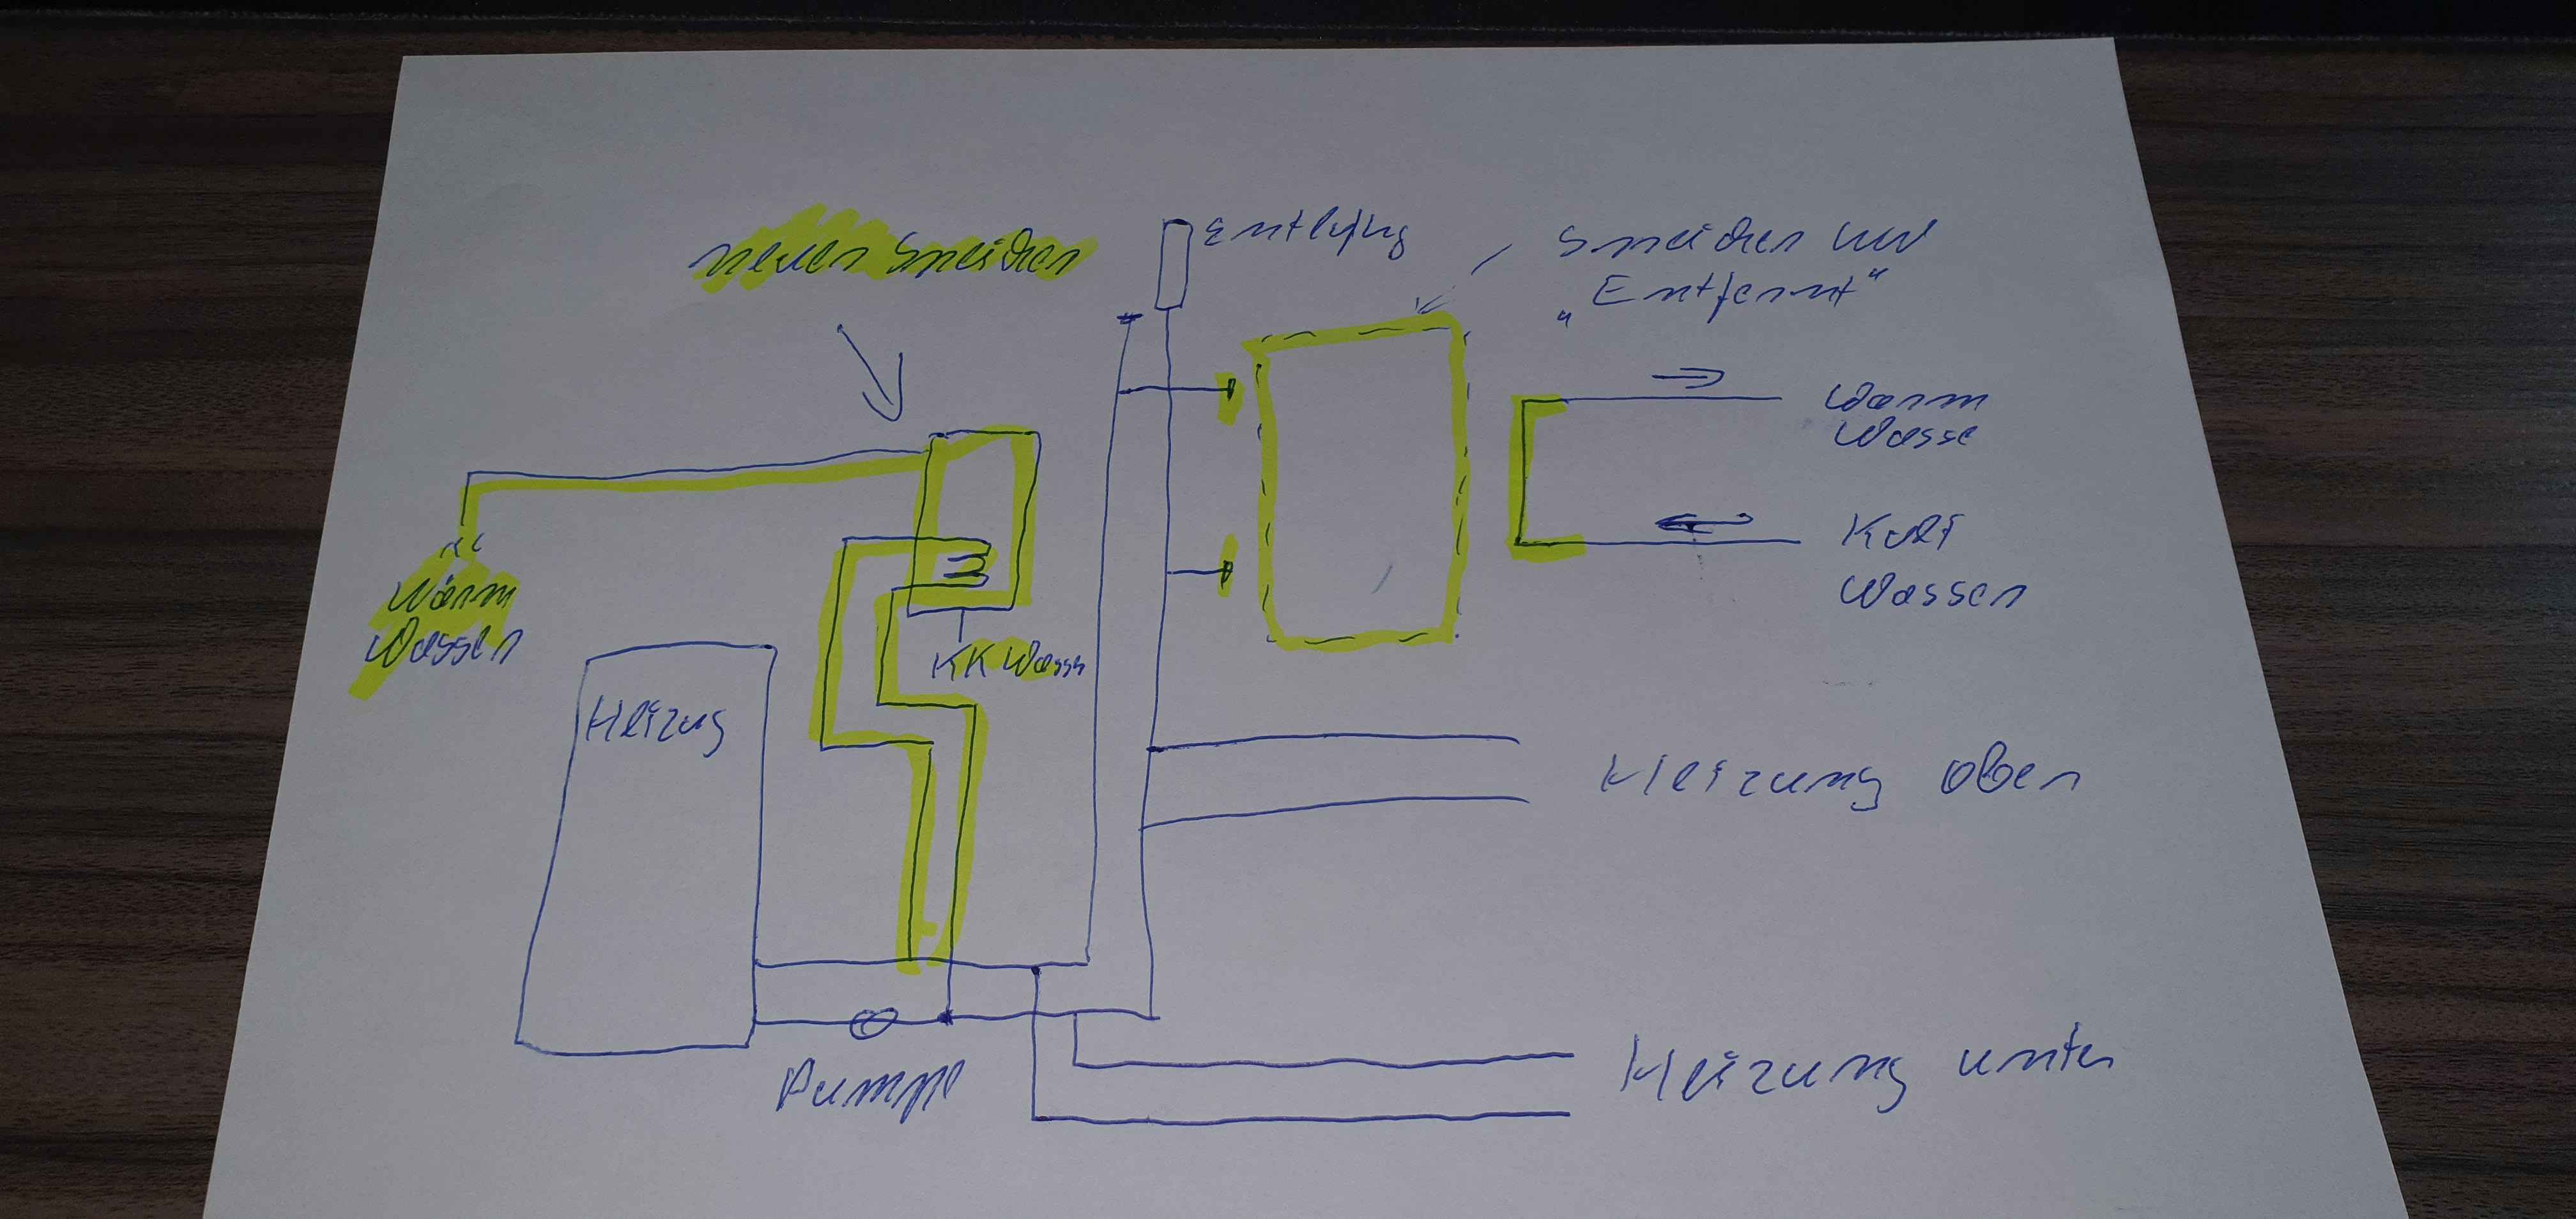 neuer Speicher
Entlüftung
Speicher wird
„Entfernt“
Warm
Wasse
Kalt
Wasser
Warm
Wasser
KK Wasser
Heizug
Heizung oben
Pumpe
Heizung unten